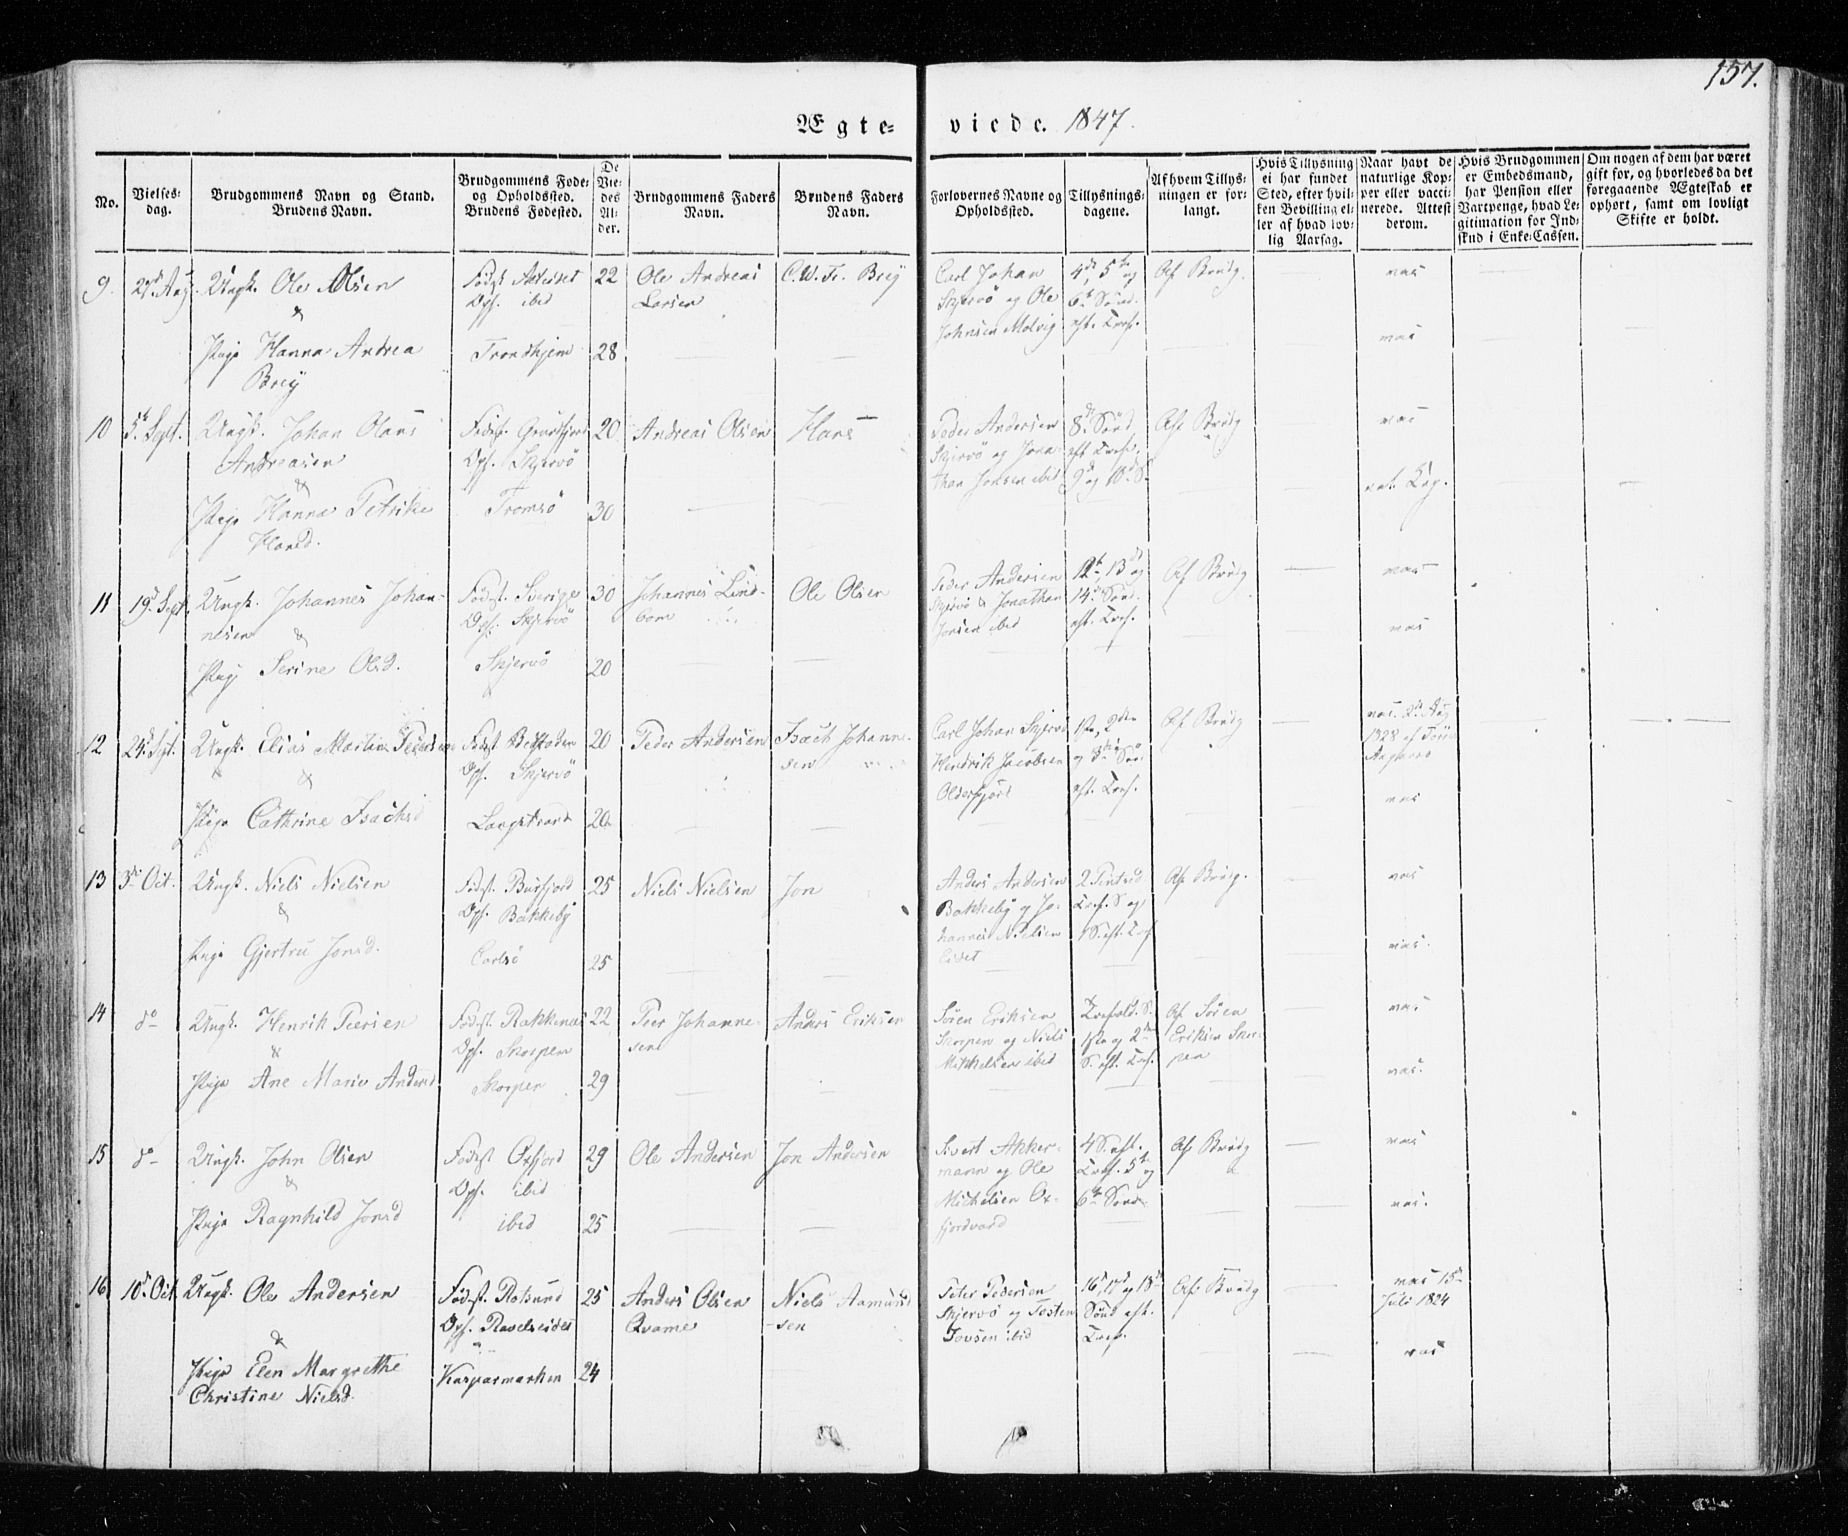 157.
Ægte- viede. 1847.
No.
Vielses-
dag.
Brudgommens Navn og Stand.
Brudens Navn.
Brudgommens Føde-
og Opholdssted.
Brudens Fødested.
De
Vie-
des
Al-
der.
Brudgommens Faders
Navn.
Brudens Faders
Navn.
Forlovernes Navne og
Opholdssted.
Tillysnings-
dagene.
Af hvem Tillys-
ningen er for-
langt.
Hvis Tillysning
ei har fundet
Sted, efter hvil-
ken Bevilling el-
ler af hvad lov-
lig Aarsag.
Naar havt de
naturlige Kop-
per eller vacci-
nerede. Attest
derom.
Hvis Brudgommen
er Embedsmand,
har Pension eller
Vartpenge, hvad Le-
gitimation for Ind-
skud i Enke-Cassen.
Om nogen af dem har været
gift for, og hvorledes da det
foregaaende Ægteskab er
ophørt, samt om lovligt
Skifte er holdt.
9. Aug. Ungk. Ole Olsen
&
Pige Hanna Andrea
Brey
Fødst
Opf. ibid
Trondhjem
22
28
Ole Andreas
Larsen
C. W. Fr. Brey
Carl Johan
Skjervø og Ole
Johnsen Molvig
4de, 5te og
6te Sønd.
eft. Tref.
Af Brudg.
vac
vac
10 5te Sept. Ungk. Johan Olaus
Andreasen
&
Pige Hanna Petrike
Hansd.
Fødst
Opf. Skjervø
Tromsø
20
30
Andreas Olsen
Hans
Peder Andersen
Skjervø og Jona-
than Jonsen ibid
8de Sønd
eft Tref.
9de og 10de S.
Af Brudg
vac
nat. Kop.
11 19de Sept. Ungk. Johannes Johan-
nesen
&
Pige Serine Olsd.
Fødst. Sverige
Opf. Skjervø
Skjervø
30
20
Johannes Lind-
bom
Ole Olsen
Peder Andersen
Skjervø & Jonathan
Jonsen ibid
12te, 13de og
14de Sønd.
eft. Tref.
Af Brudg
vac
vac
12 Sept. Ungk. Elias Martin Pedersen
&
Pige Cathrine Isachsd
Fødst
Opf. Skjervø
Langstrand
20
20
Peder Andersen
Isach Johanne-
sen
Carl Johan Skjervø
Hendrik Jacobsen
Olderfjord
1ste, 2den
og 3die Søn.
eft. Tref.
Af Brudg
vac. 2de Aug
1828 af
Aagaard
vac
13 3de Oct. Ungk. Niels Nielsen
&
Pige Gjertru Jonsd.
Fødst. Burfjord
Opf. Bakkeby
Carlsø
25
25
Niels Nielsen
Jon
Anders Andersen
Bakkeby og Jo-
hannes Nielsen
2
Tref. S og
1 S. eft. Tref
Af Brudg.
vac
vac.
14 do Ungk. Henrik Peersen
&
Pige Ane Marie Andersd
Fødst. Rakkenes
Opf. Skorpen
Skorpen
22
29
Peer Johanne-
sen
Anders Eriksen
Søren Eriksen
Skorpen og Niels
Mikkelsen ibid
Trefold. S.
1ste og 2den
S. eft. Tref.
Af Søren
Eriksen Skor-
pen
vac
vac.
15 do Ungk. John Olsen
&
Pige Ragnhild Jonsd
Fødst Oxfjord
Opf. ibid
ibid
29
25
Ole Andersen
Jon Andersen
Sivert Akker-
mann og Ole
Michelsen Ox-
fjordvand
4 S. eft.
Tref. 5te og
6te Sønd.
Af Brudg
vac
vac.
16 10de Oct. Ungk. Ole Andersen
&
Pige Elen Margrethe
Christine Nielsd.
Fødst. Rotsund
Opf. Ravelseidet
Kasparmarken
25
24
Anders Olsen
Qvame
Niels Aamund-
-sen
Peter Pedersen
Skjervø og Tosten
Tovsen ibid
16de, 17de og 18de
Sønd eft.
Tref.
Af Brudg
vac 15de
Juli 1824
vac